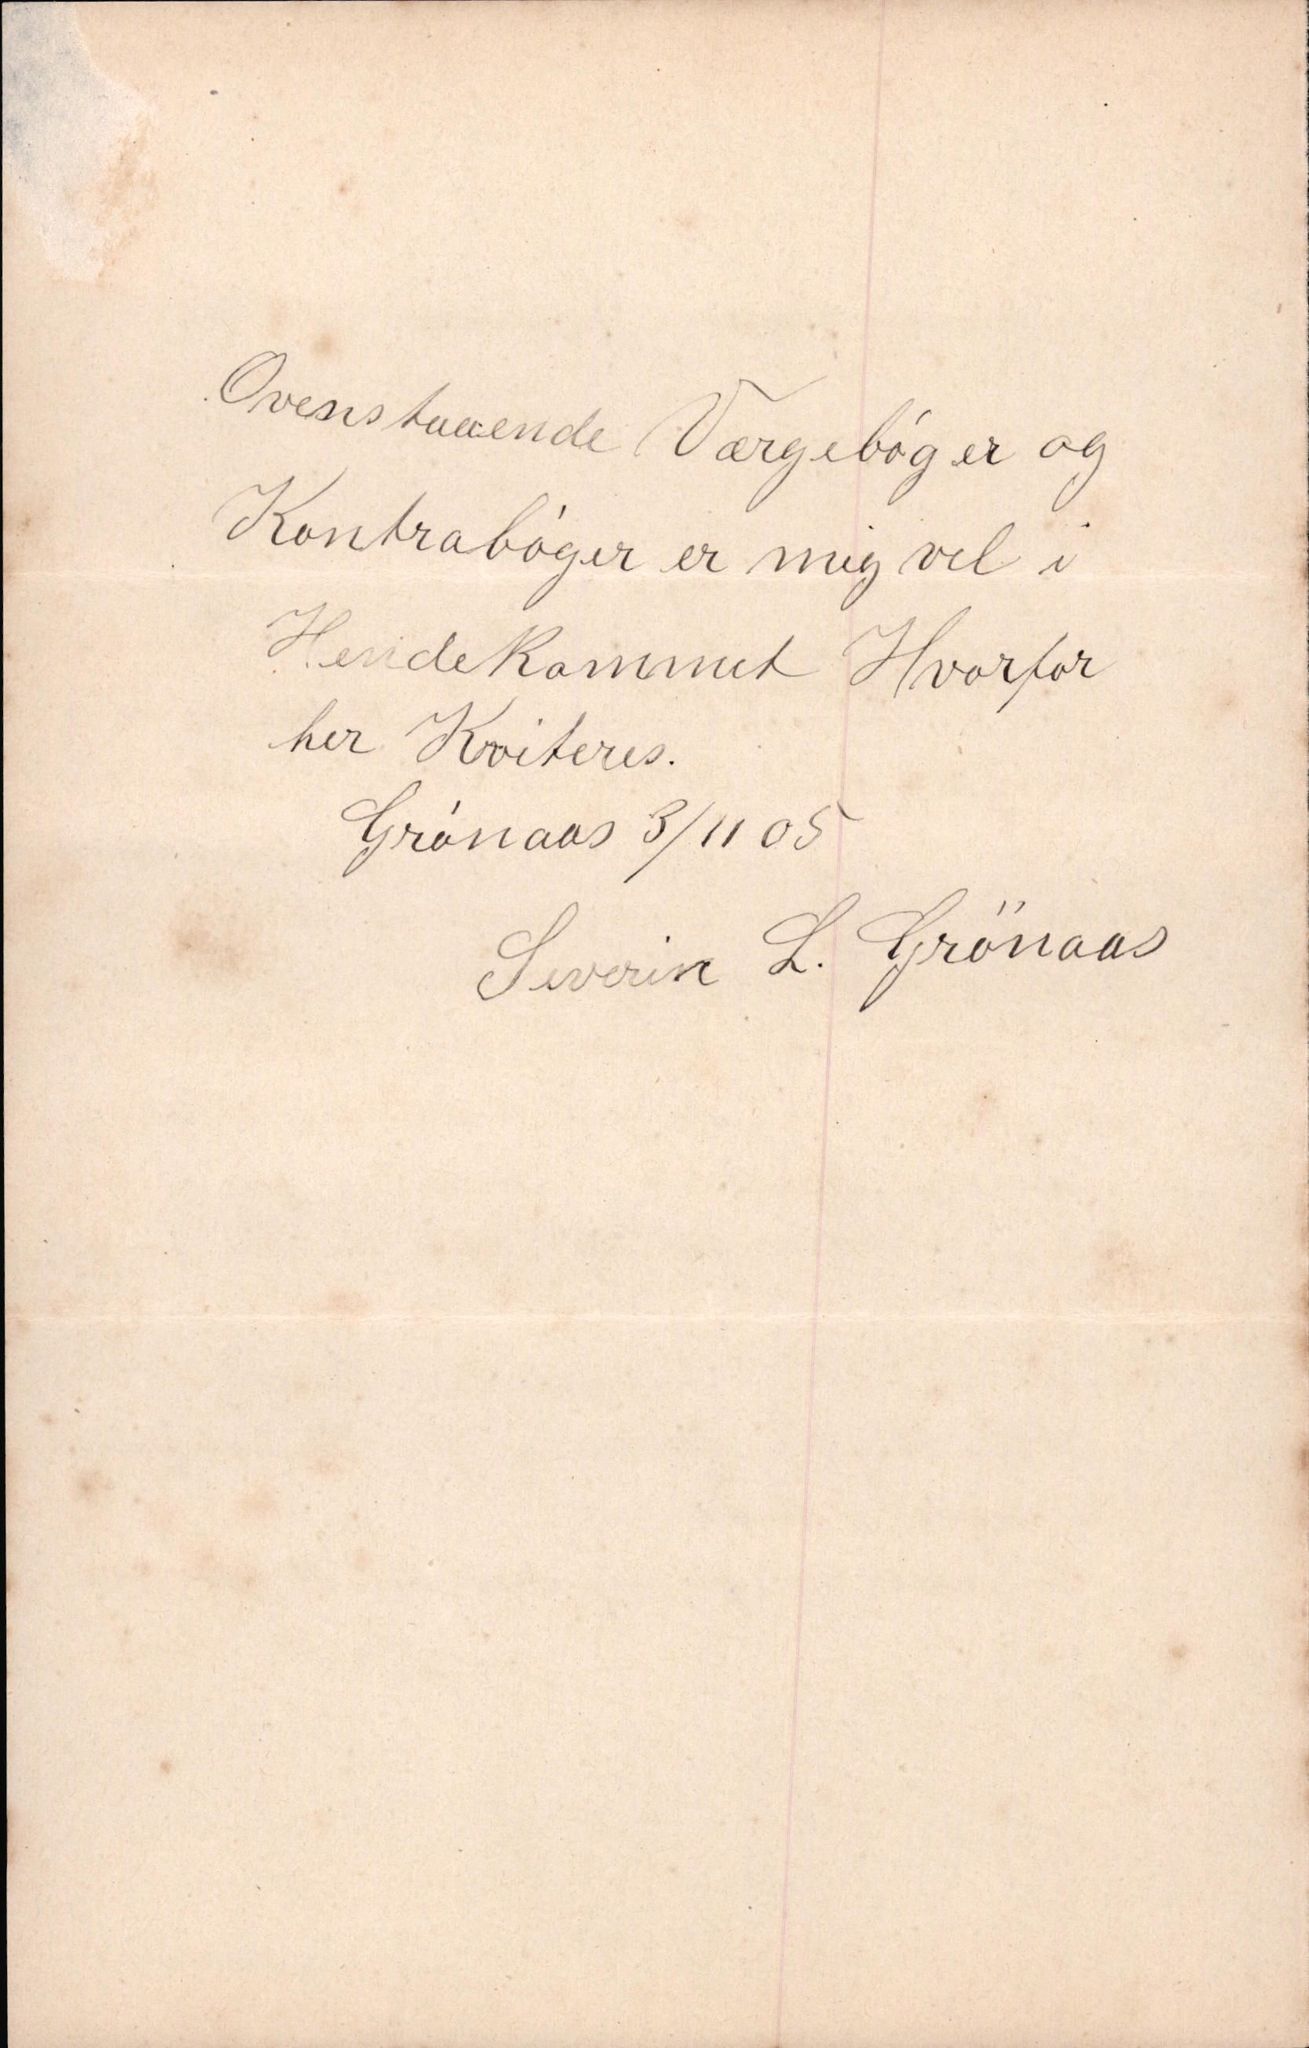 Ovenstaaende Værgebøger og
Kontrabøger er mig vel i
Hendekommet Hvorfor
her Kviteres.
Grønaas 3/11 05
Severin L. Grönaas